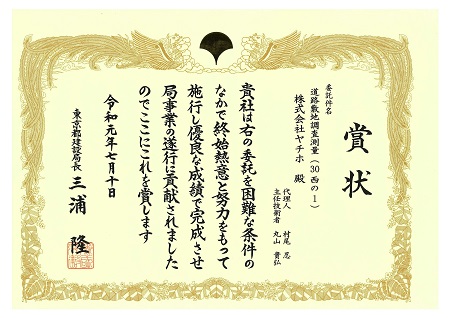 賞状
委託件名
道路敷地調査測量（30西の１）
株式会社ヤチホ 殿
代理人 村尾 忍
主任技術者 丸山 貴弘
貴社は右の委託を困難な条件の
なかで終始熱意と努力をもって
施行し優良な成績で完成させ
局事業の遂行に貢献されました
のでここにこれを賞します
令和元年七月十日
東京都建設局長 三浦 隆